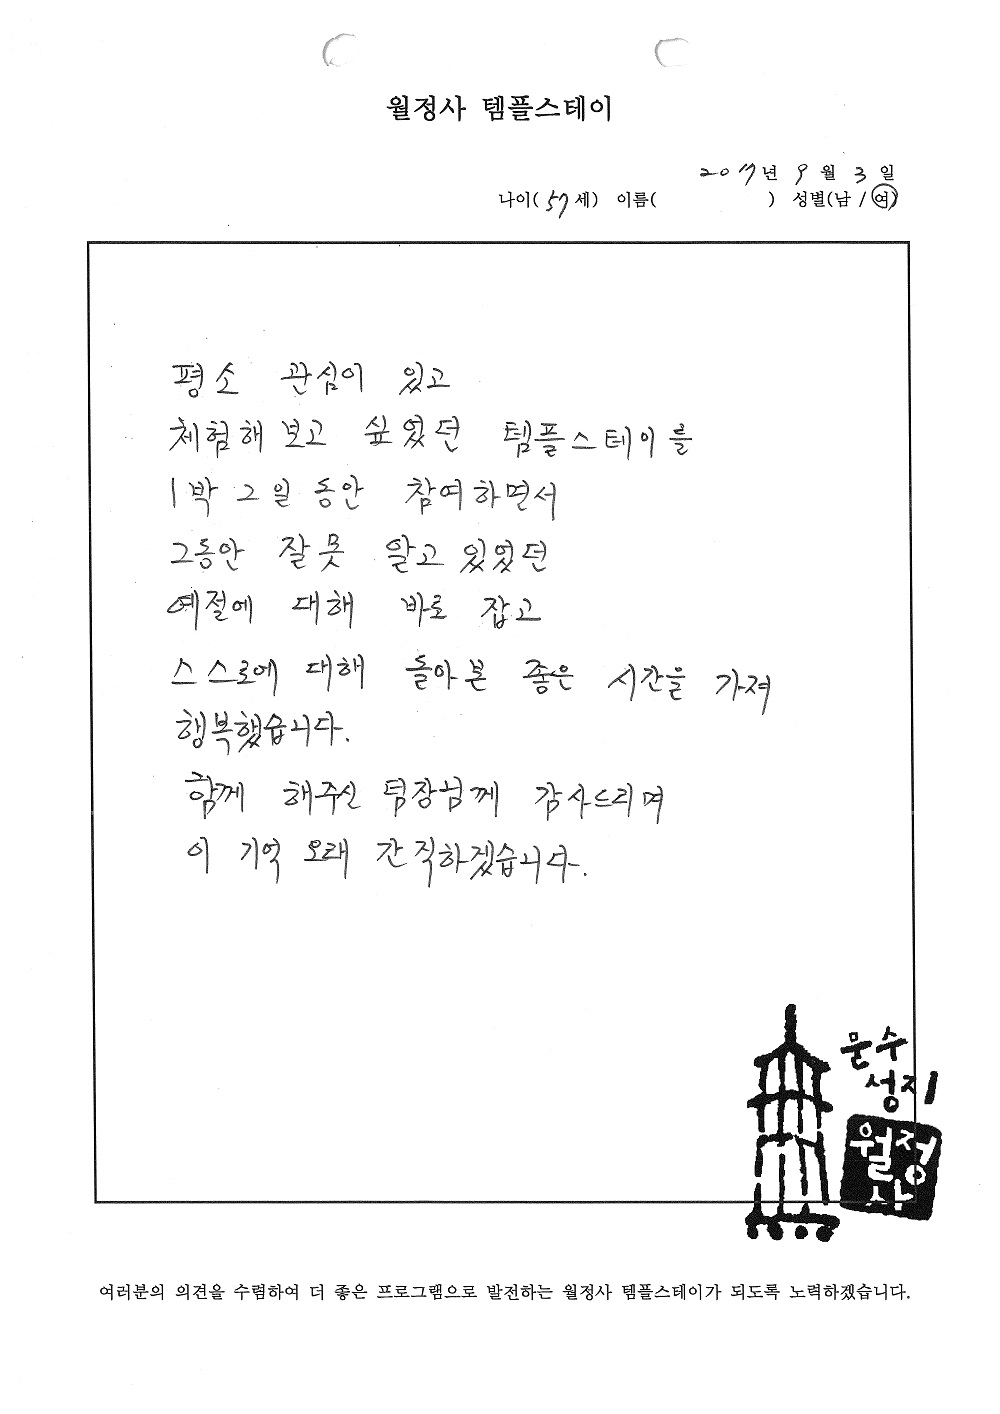 월정사 템플스테이
2017년 9월 3일
나이( 57세) 이름( ) 성별(남 / 여)
평소 관심이 있고
체험해 보고 싶었던 템플스테이를
1박 2일 동안 참여하면서
그동안 잘못 알고 있었던
예절에 대해 바로 잡고
스스로에 대해 돌아본 좋은 시간을 가져
행복했습니다.
함께 해주신 팀장님께 감사드리며
이 기억 오래 간직하겠습니다.
문수
성지
월정
사
여러분의 의견을 수렴하여 더 좋은 프로그램으로 발전하는 월정사 템플스테이가 되도록 노력하겠습니다.